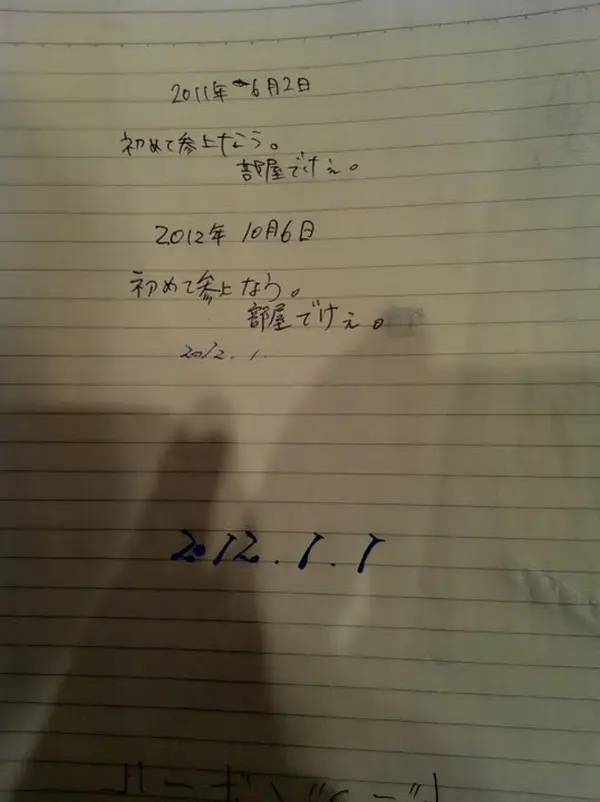 2011年 6月2日
初めて参上なう。
部屋でけぇ。
2012年 10月6日
初めて参上なう。
部屋でけぇ。
2012.1.
2012.1.1